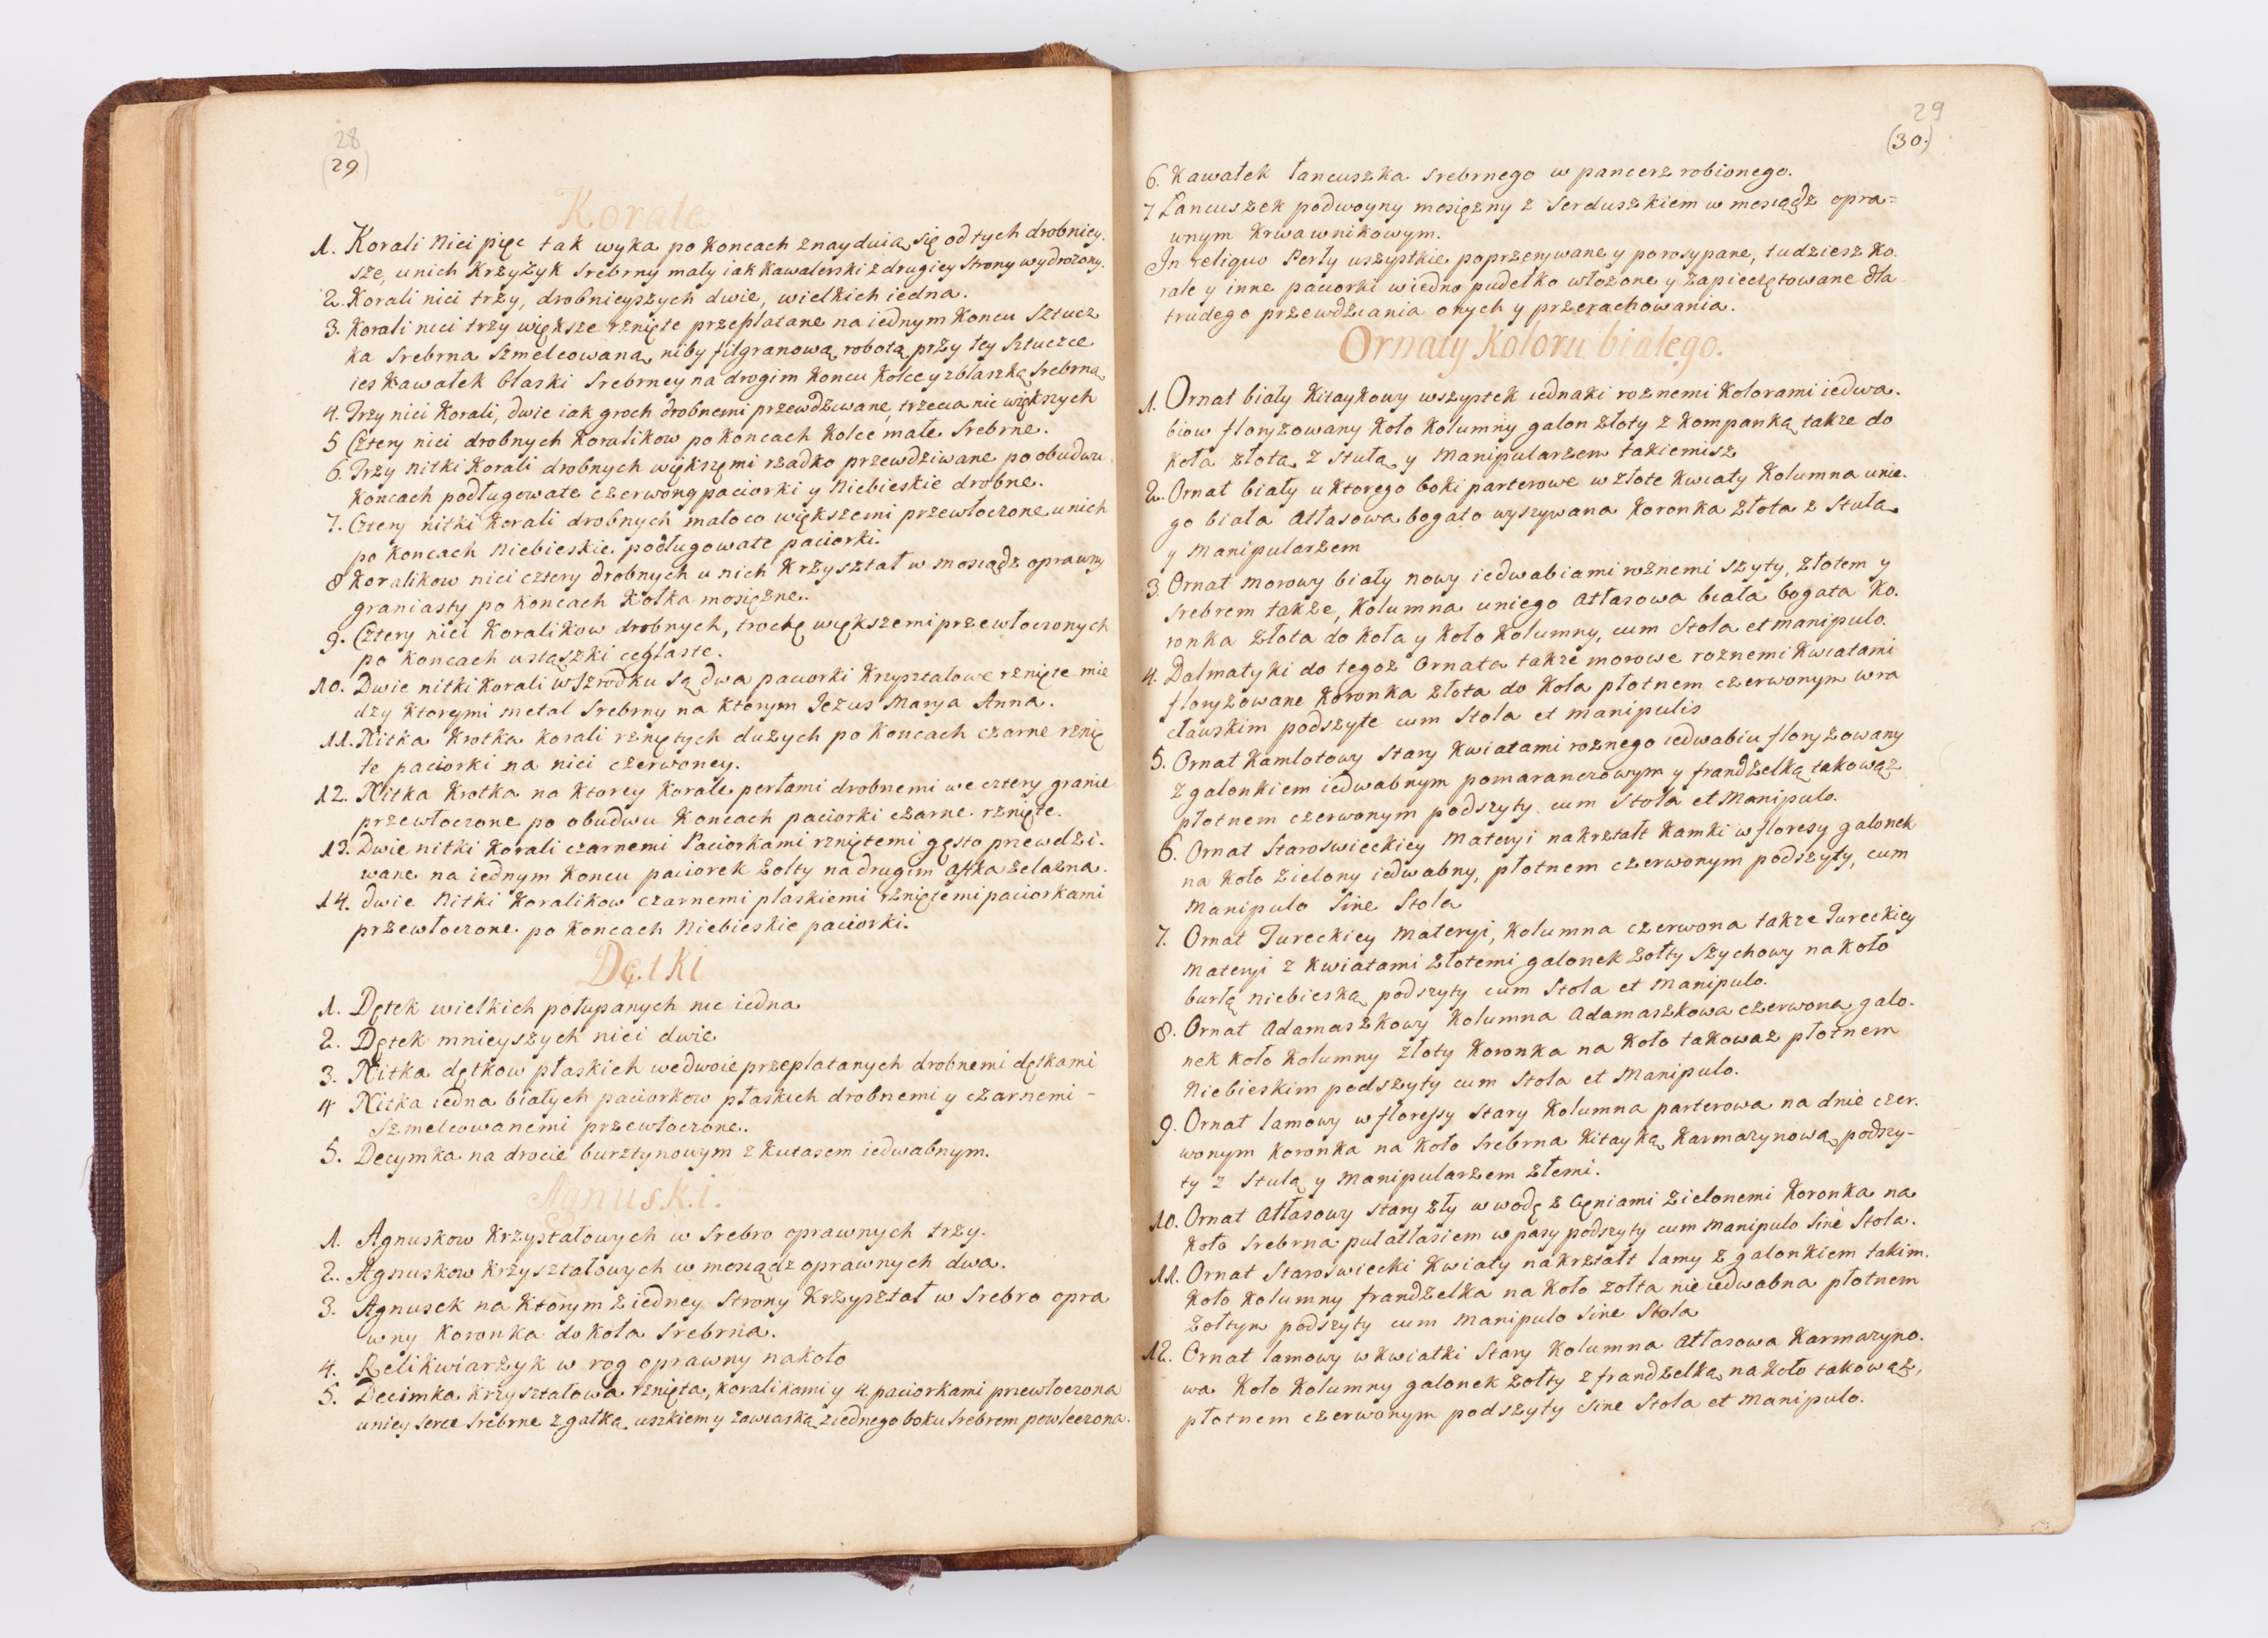 28
(29)
Korale
1. Korali Nici pięc tak wyka po koncach znayduią się od tych drobniey.
sze, u nich Krzyżyk Srebrny mały iak Kawalerski z drugiey Strony wydrożony.
2. Korali nici trzy, drobnieyszych dwie, wielkich iedna.
3. Korali nici trzy większe rznięte przeplatane na iednym Koncu Sztucz
ka Srebrna Szmelcowana, niby filgranową robotą, przy tey Sztuczce
ies Kawałek blaski Srebrney na drogim Koncu Kolce y zblaszką Srebrną
4. Trzy nici Korali, dwie iak groch drobnemi przewdziwane, trzecia nic większych
5 Cztery nici drobnych Koralikow po Koncach Kolce małe Srebrne.
6. Trzy nitki Korali drobnych większemi rzadko przewdziwane po obudwu
Koncach podługowate czerwone paciorki y Niebieskie drobne.
7. Cztery nitki Korali drobnych mało co większemi przewłoczone u nich
po Koncach Niebieskie podługowate paciorki.
8 Koralikow nici cztery drobnych u nich Krzyształ w mosiądz oprawny
graniasty po Koncach Kołka mosiężne.
9. Cztery nici Koralikow drobnych, trochę większemi przewłoczonych
po Koncach wstąszki ceglaste.
10. Dwie nitki Korali w Szrodku są dwa paciorki Krzyształowe rznięte mie
dzy Ktorymi metal Srebrny na Ktorym Jezus Marya Anna.
11. Nitka Krotka Korali rzniętych dużych po Koncach czarne rznię
te paciorki na nici czerwoney.
12. Nitka Krotka na Ktorey Korale perłami drobnemi we cztery granie
przewłoczone po obudwu Koncach paciorki czarne rznięte.
13. Dwie nitki Korali czarnemi Paciorkami rzniętemi gęsto przewdzi.
wane na iednym Koncu paciorek żołty na drugim aftka żelazna.
14. dwie Nitki Koralikow czarnemi płaskiemi rzniętemi paciorkami
przewłoczone po Koncach Niebieskie paciorki.
Dętki
1. Dętek wielkich połupanych nic iedna
2. Dętek mnieyszych nici dwie
3. Nitka dętkow płaskich we dwoie przeplatanych drobnemi dętkami
4 Nitka iedna białych paciorkow płaskich drobnemi y czarnemi -
Szmelcowanemi przewłoczone.
5. Decymka na drocie bursztynowym z Kutasem iedwabnym.
Agnuski.
1. Agnuskow Krzyształowych w Srebro oprawnych trzy.
2. Agnuskow Krzyształowych w mosiądz oprawnych dwa.
3. Agnusek na Ktorym z iedney Strony Krzyształ w Srebro opra
wny Koronka do Koła Srebrna.
4. Relikwiarzyk w rog oprawny nakoło
5. Decimka Krzyształowa rznięta, koralikami y 4 paciorkami przewłoczona
u niey Serce Srebrne z gałką, uszkiem y zawiaską z iednego boku Srebrem powleczona.
29
(30.)
6. Kawałek Łancuszka Srebrnego w pancerz robionego.
7 Łancuszek podwoyny mosiężny z Serduszkiem w mosiądz opra=
wnym Krwawnikowym.
In reliquo Perły wszystkie poprzerywane y porosypane, tudziesz Ko.
rale y inne paciorki w iedno pudełko włożone y zapieczętowane dla
trudego przewdziania onych y przerachowania.
Ornaty Koloru białego.
1. Ornat biały Kitaykowy wszystek iednaki roznemi Kolorami iedwa.
biow floryzowany Koło Kolumny galon złoty z Kompanką takze do
Koła złotą, z Stułą y Manipularzem takiemisz
2. Ornat biały u Ktorego boki parterowe w złote Kwiaty Kolumna unie.
go biała Atłasowa bogato wyszywana Koronka złota z Stułą
y Manipularzem
3. Ornat morowy biały nowy iedwabiami roznemi szyty, złotem y
Srebrem takze, Kolumna uniego Atłasowa biała bogata Ko.
ronka złota do Koła y Koło Kolumny, cum Stola et manipulo.
4. Dalmatyki do tegoż Ornata takze morowe roznemi Kwiatami
floryzowane Koronka złota do Koła płotnem czerwonym wra
cławskim podszyte cum Stola et manipulis
5. Ornat Kamlotowy Stary Kwiatami roznego iedwabiu floryzowany
z galonkiem iedwabnym pomaranczowym y frandzelką takowąz
płotnem czerwonym podszyty cum Stola et Manipulo.
6. Ornat Staroswieckiey Materyi nakrztałt Kamki w floresy galonek
na Koło zielony iedwabny, płotnem czerwonym podszyty, cum
Manipulo Sine Stola
7. Ornat Tureckiey Materyi, Kolumna czerwona takze Tureckiey
Materyi z Kwiatami złotemi galonek żołty Szychowy na Koło
burłą niebieską podszyty cum Stola et Manipulo.
8. Ornat Adamaszkowy Kolumna Adamaszkowa czerwona, galo.
nek Koło Kolumny złoty Koronka na Koło takowaz płotnem
Niebieskim podszyty cum Stola et Manipulo.
9. Ornat lamowy w floressy Stary Kolumna parterowa na dnie czer.
wonym Koronka na Koło Srebrna Kitayką Karmazynową podszy-
ty z Stulą y Manipularzem złemi.
10. Ornat Atłasowy Stary zły w wodę z Cęniami zielonemi Koronka na
Koło Srebrna pułatłasiem w pasy podszyty cum Manipulo Sine Stola.
11. Ornat Staroswiecki Kwiaty nakrztałt lamy z galonkiem takim.
Koło Kolumny frandzelka na Koło żołta nie iedwabna płotnem
żołtym podszyty cum Manipulo Sine Stola
12. Ornat lamowy w Kwiatki Stary Kolumna Atłasowa Karmazyno.
wa Koło Kolumny galonek żołty z frandzelką na Koło takowąż,
płotnem czerwonym podszyty Sine Stola et Manipulo.